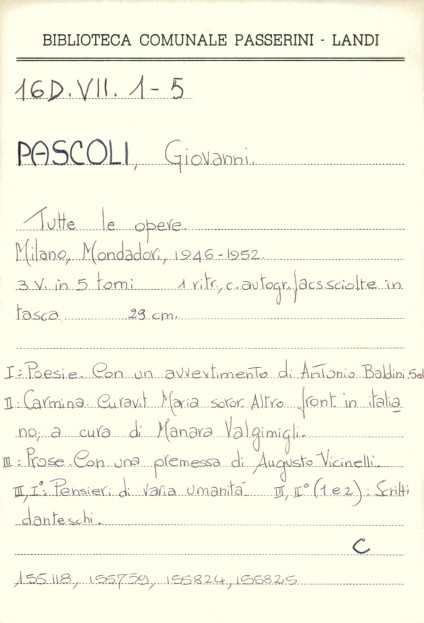 BIBLIOTECA COMUNALE PASSERINI - LANDI
16D.VII. 1-5
PASCOLI, Giovanni.
Tutte le opere.
Milano, Mondadori, 1946-1952.
3 V. in 5 tomi 1 ritr., c. autogr. facs sciolte in
tasca 23 cm.
I: Poesie. Con un avvertimento di Antonio Baldini.
II: Carmina. Curavit Maria soror. Altro front. in italia
no; a cura di Manara Valgimigli.
III: Prose. Con una premessa di Augusto Vicinelli.
III, I°: Pensieri di varia umanità. III, II° (1 e 2): Scritti
danteschi.
C
155118, 155759, 155824, 156825